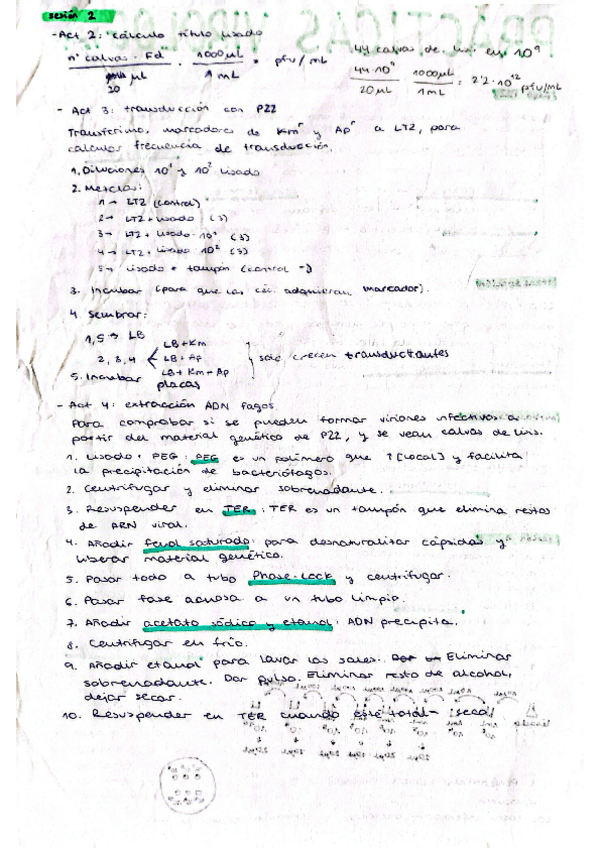 sesión 2
- Act 2: cálculo título lisado
nº calvas · Fd / 20 µL · 1000µL / 1 mL = pfu / mL
44 calvas de lisis en 10⁹
44·10⁹ / 20 µL · 1000µL / 1mL = 2'2·10¹² pfu/mL
- Act 3: transducción con P22
Transferimos marcadores de Kmʳ y Apʳ a LT2, para
calcular frecuencia de transducción.
1. Diluciones 10¹ y 10² lisado
2. Mezclas:
1 → LT2 (control)
2 → LT2 + lisado (3)
3 → LT2 + lisado 10¹ (3)
4 → LT2 + lisado 10² (3)
5 → lisado + tampón (control -)
3. Incubar (para que las cél. adquieran marcador).
4. Sembrar:
1, 5 → LB
2, 3, 4 < LB + Km
LB + Ap
LB + Km + Ap
solo crecen transductantes
5. Incubar placas
- Act 4: extracción ADN fagos
Para comprobar si se pueden formar viriones infectivos a
partir del material genético de P22, y se vean calvas de lisis.
1. Lisado + PEG: PEG es un polímero que ↑ [local] y facilita
la precipitación de bacteriófagos.
2. Centrifugar y eliminar sobrenadante.
3. Resuspender en TER: TER es un tampón que elimina restos
de ARN viral.
4. Añadir fenol saturado: para desnaturalizar cápsidas y
liberar material genético.
5. Pasar todo a tubo Phase-Lock y centrifugar.
6. Pasar fase acuosa a un tubo limpio.
7. Añadir acetato sódico y etanol: ADN precipita.
8. Centrifugar en frío.
9. Añadir etanol para lavar las sales. Eliminar
sobrenadante. Dar pulso. Eliminar resto de alcohol,
dejar secar.
10. Resuspender en TER cuando esté total- seca